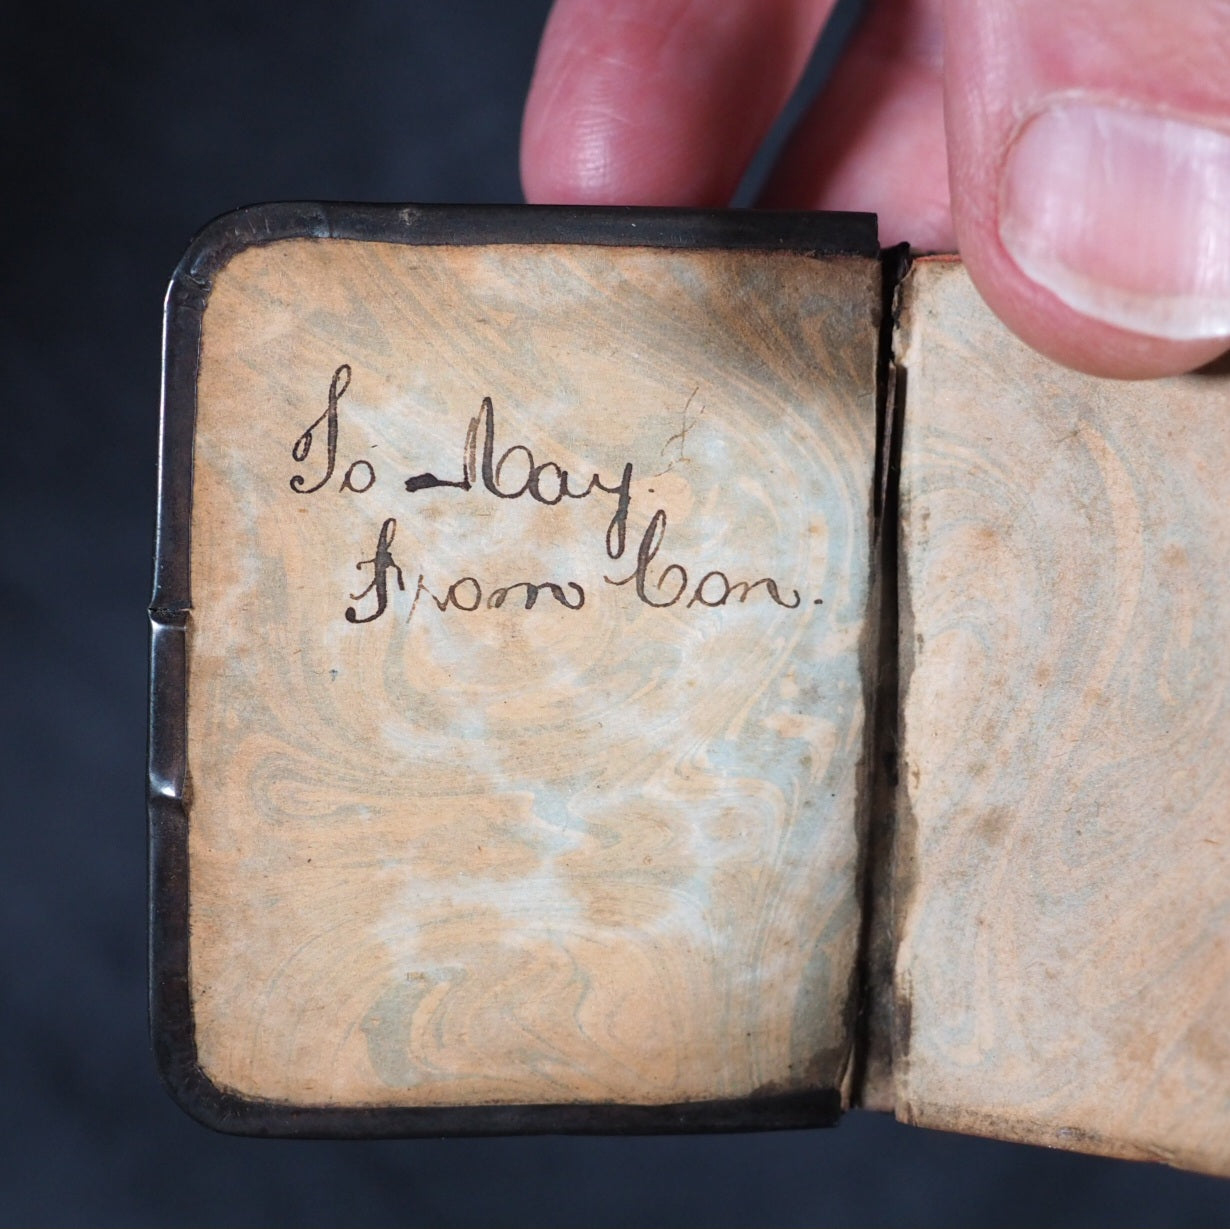 To May.
From Con.